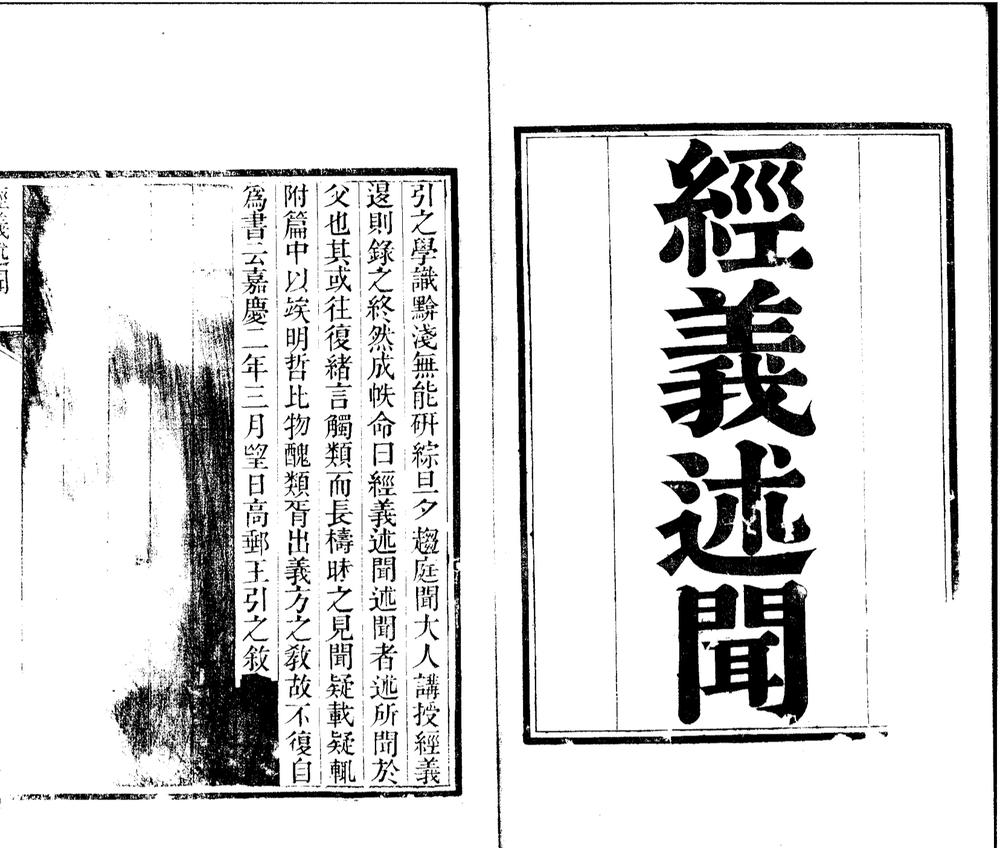 經義述聞
引之學識黭淺無能硏綜旦夕趨庭聞大人講授經義
退則錄之終然成帙命曰經義述聞述聞者述所聞於
父也其或往復緒言觸類而長檮昧之見聞疑載疑輒
附篇中以竢明哲比物醜類胥出義方之教故不復自
爲書云嘉慶二年三月望日高郵王引之敘
經義述聞